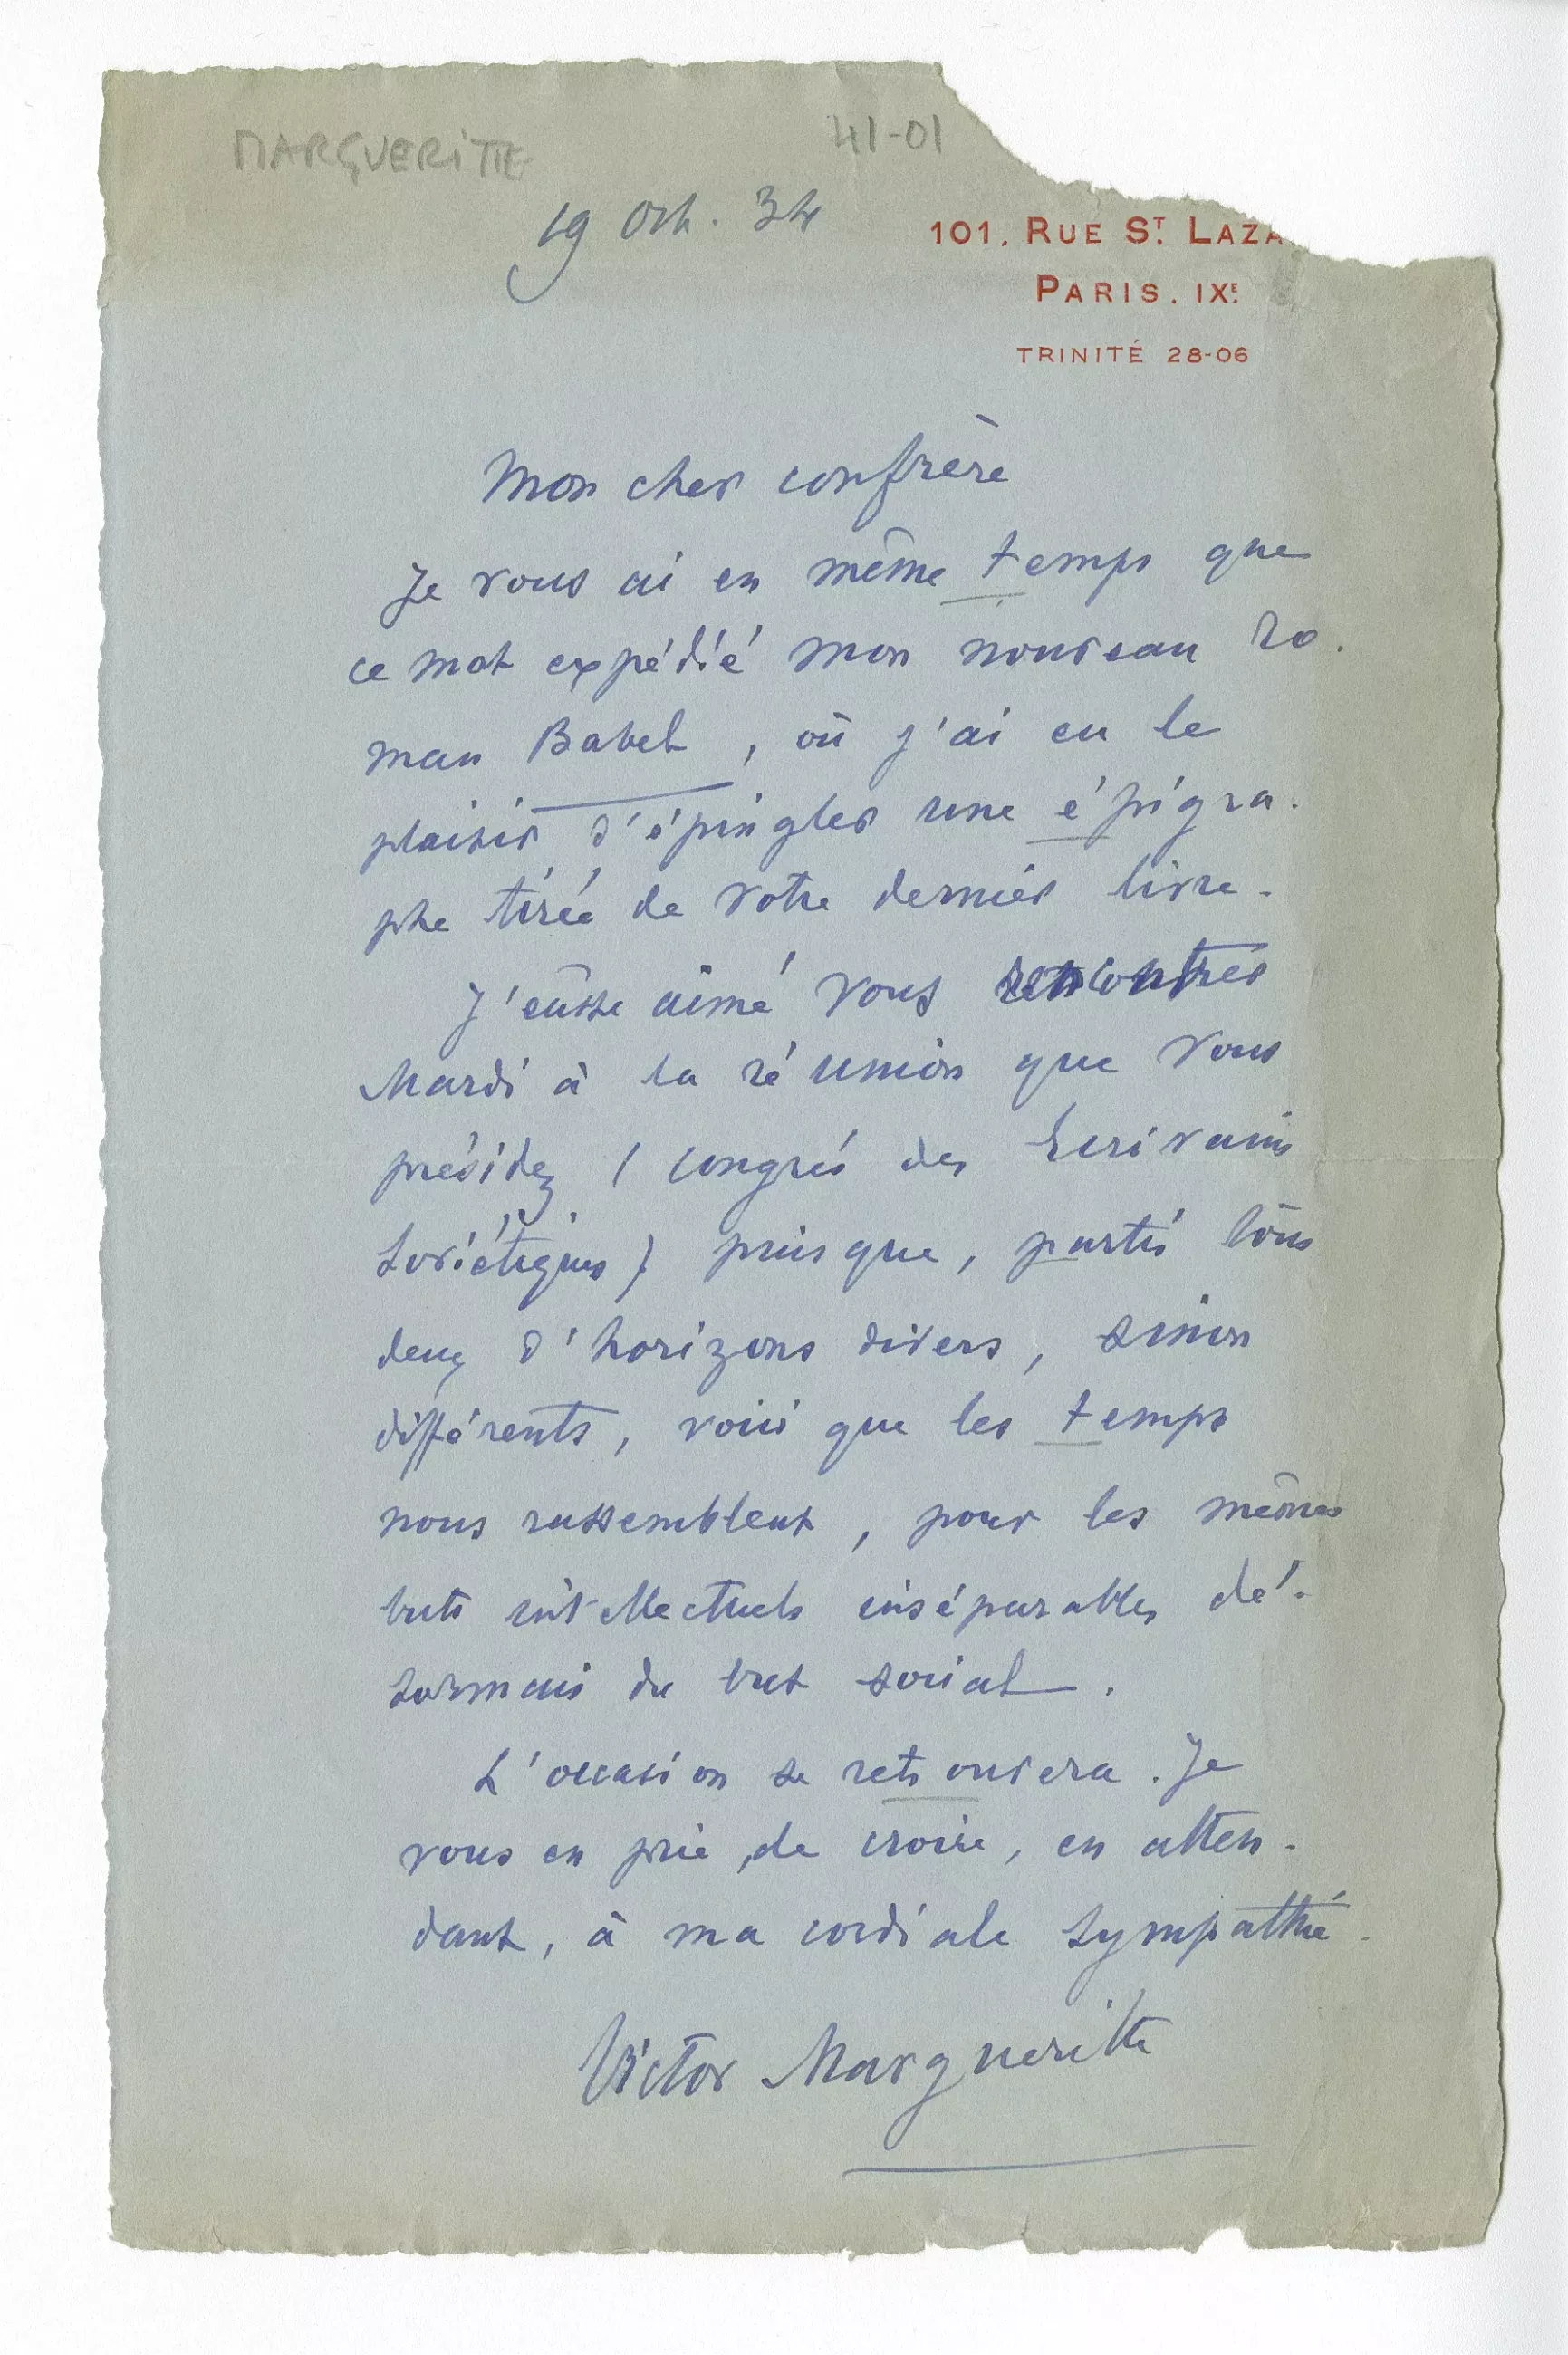 MARGUERITTE
41-01
19 Oct. 34
101. RUE ST. LAZA
PARIS. IXE.
TRINITÉ 28-06
Mon cher confrère
Je vous ai en même temps que
ce mot expédié mon nouveau ro-
man Babel, où j'ai eu le
plaisir d'épingler une épigra-
phe tirée de votre dernier livre.
J'eusse aimé vous rencontrer
Mardi à la réunion que vous
présidez (congrès des Ecrivains
Soviétiques) puisque, partis tous
deux d'horizons divers, sinon
différents, voici que les temps
nous rassemblent, pour les mêmes
buts intellectuels inséparables dé-
sormais du but social.
L'occasion se retrouvera. Je
vous en prie, de croire, en atten-
dant, à ma cordiale sympathie.
Victor Margueritte